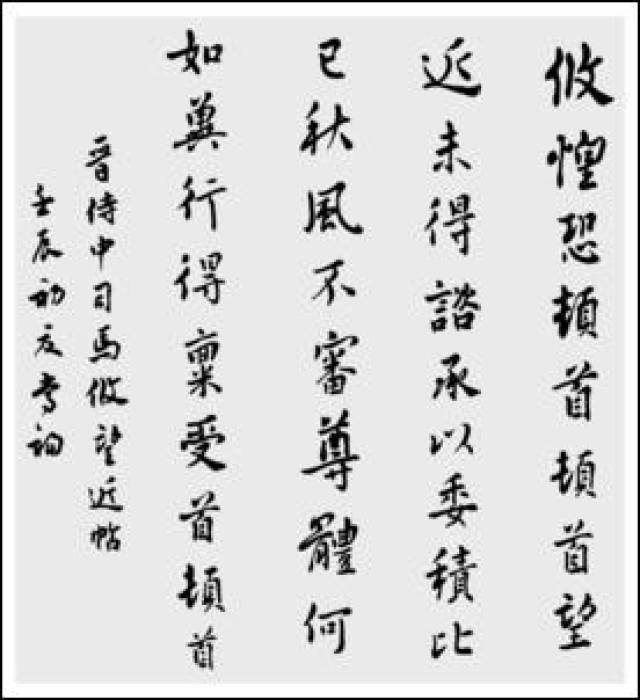 攸惶恐頓首頓首望
近未得諮承以委積比
已秋風不審尊體何
如冀行得稟受首頓首
晋侍中司馬攸望近帖
壬辰初夏